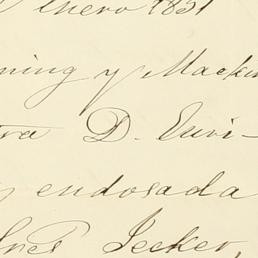 Enero 1851
ning y Macki
tra D. Euri-
endosada
Jecker,